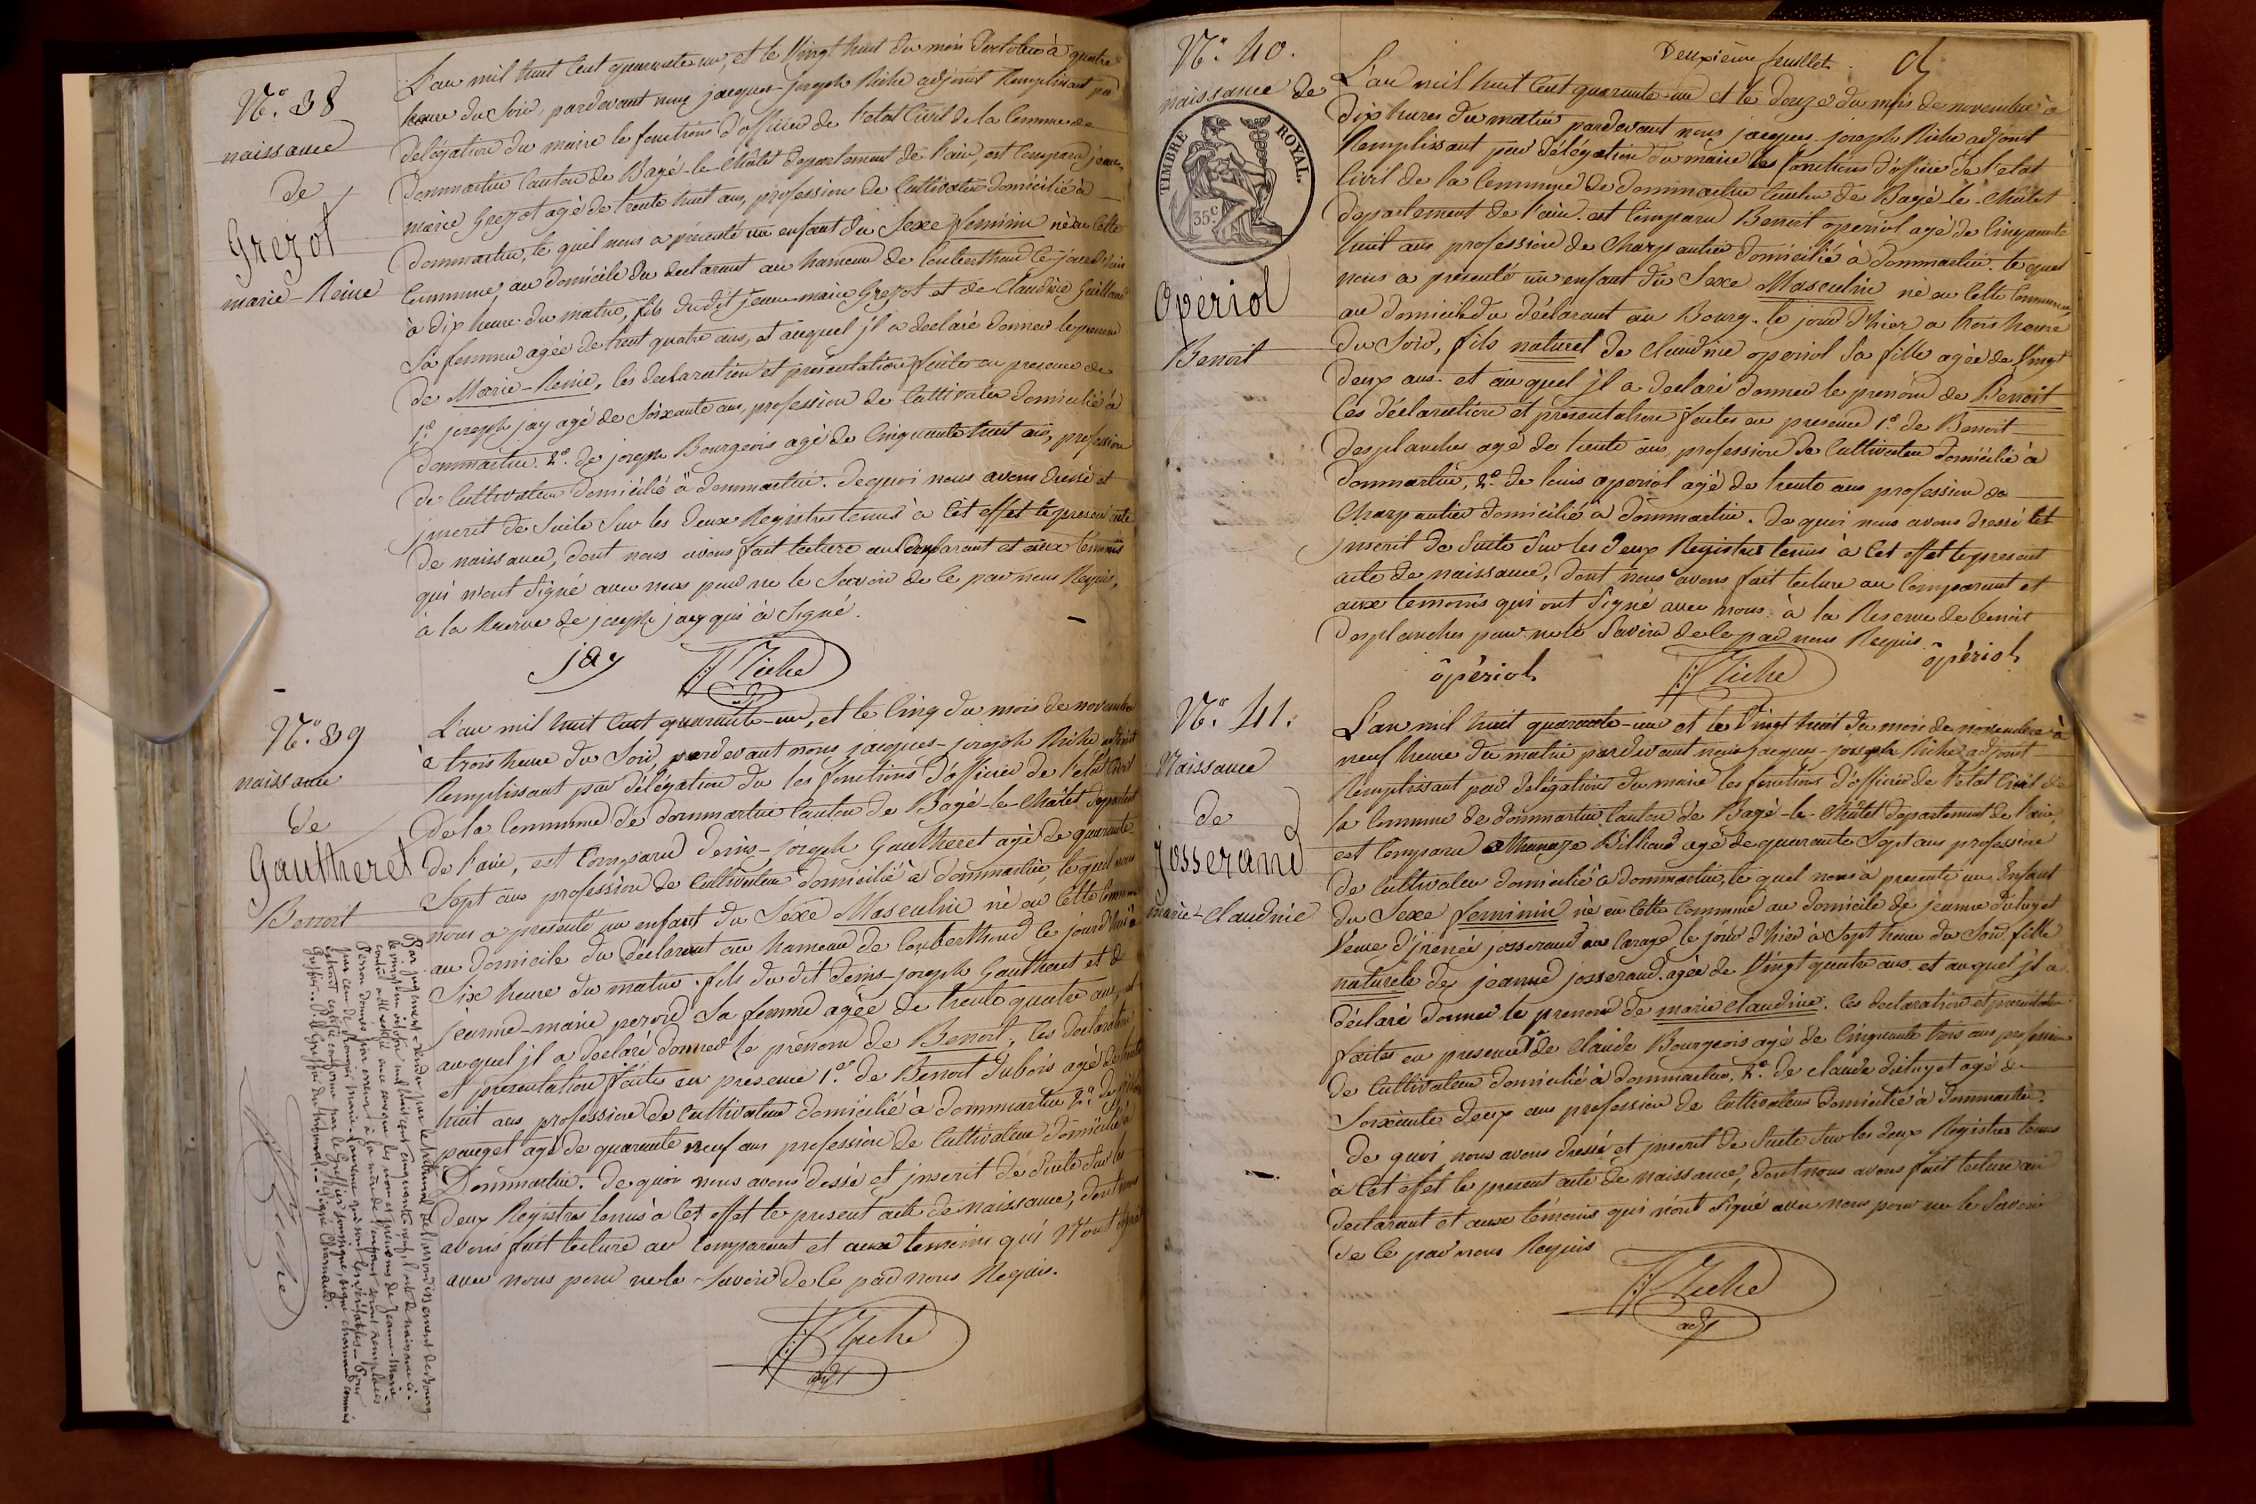 N.o 38
naissance
de
Grezot
marie-Reine
L'an mil huit cent quarante-un, et le vingt huit du mois d'octobre à quatre
heure du Soir, pardevant nous jacques-joseph Riche adjoint Remplissant par
délégation du maire le fonctions d'officier de l'etat Civil de la Commune de
Dommartin Canton de Bagé-le-Châtel departement de l'ain, est Comparu jean-
marie Grezot agé de trente huit ans, profession de Cultivateur domicilié à
Dommartin, le quel nous a présenté un enfant du Sexe féminin né en Cette
Commune au domicile du declarant au hameau de Couberthoud le jour d'hier
à dix heure du matin, fils dudit jean-marie Grezot et de Claudine Guillard
Sa femme agée de trent quatre ans, et auquel jl a declaré donner le prenom
de Marie-Reine, les declaration et présentation faites en presence de
1.o joseph jay agé de Soixante ans, profession de Cultivateur domicilié à
dommartin. 2.o de joseph Bourgeois agé de Cinquante huit ans, profession
de Cultivateur domicilié à dommartin. de quoi nous avons dressé et
jnscrit de Suite Sur les deux Registres tenus à Cet effet le present acte
de naissance, dont nous avons fait lecture au Comparant et aux temoins
qui n'ont Signé avec nous pour ne le Savoir de ce par nous Requis,
à la Reserve de joseph jay qui à Signé.
jay
JJ Riche
adj
N.o 39
naissance
de
Gautheret
Benoit
L'an mil huit cent quarante-un, et le Cinq du mois de novembre
à trois heure du Soir, pardevant nous jacques-joseph Riche adjoint
Remplissant par délégation du les fonctions d'officier de l'etat Civil
de la Commune de dommartin Canton de Bagé-le-Châtel departement
de l'ain, est Comparu denis-joseph Gautheret agé de quarante
Sept ans profession de Cultivateur domicilié à dommartin, le quel nous
nous a présenté un enfant du Sexe Masculin né en Cette Commune
au domicile du déclarant au hameau de Couberthoud le jourd'hui à
Six heure du matin. fils du dit denis-joseph Gautheret et de
jeanne-marie peroud Sa femme agée de trente quatre ans, et
auquel jl a declaré donner le prénom de Benoit, les declaration
et presentation faites en presence 1.o de Benoit dubois agé de trente
huit ans profession de Cultivateur domicilié à dommartin 2.o de
pauget agé de quarante neuf ans profession de Cultivateur domicilié à
Dommartin. de quoi nous avons dessé et jnscrit de Suite Sur les
deux Registres tenus à Cet effet le present acte de naissance, dont nous
avons fait lecture au Comparant et aux temoins qui n'ont Signé
avec nous pour ne le Savoir de ce par nous Requis.
JJ Riche
adj
Par jugement rendu par le tribunal de l'arrondissement de Bourg
mil huit cent cinquante neuf, l'acte de naissance ci-
contre a été rectifié en ce sens que les nom et prénoms de Jeanne-Marie
Perron donnés par erreur à la mère de l'enfant seront remplacés
par ceux de Marie-Laurence qui sont les véritables. - Pour
extrait certifié conforme par le Greffier soussigné, signé Charnaud commis
Greffier. - Pr le Greffier du tribunal. - Signé Charnaud.
JJ Riche
N.o 40.
naissance de
TIMBRE ROYAL.
35c
opériol
Benoit
Deuxième feuillet.
L'an mil huit Cent quarante-un et le douze du mois de novembre à
dix heures du matin pardevant nous jacques-joseph Riche adjoint
Remplissant par délégation du maire les fonctions d'officier de l'etat
Civil de la Commune de dommartin Canton de Bagé-le-Châtel
departement de l'ain. est Comparu Benoit operiol agé de Cinquante
huit ans profession de Charpentier domicilié à dommartin. le quel
nous a présenté un enfant du Sexe Masculin né en Cette Commune
au domicile du déclarant au Bourg. le jour d'hier a trois heure
du Soir, fils naturel de Claudine operiol Sa fille agée de Vingt
deux ans. et au quel jl a declaré donner le prénom de Benoit
les déclaration et presentation faites en presence 1.o de Benoit
desplanches agé de trente ans profession de Cultivateur domicilié à
dommartin, 2.o de louis operiol agé de trente ans profession de
Charpentier domicilié à dommartin. de quoi nous avons dressé et
jnscrit de Suite Sur les deux Registres tenus à Cet effet le present
acte de naissance, dont nous avons fait lecture au Comparant et
aux temoins qui ont Signé avec nous. à la Reserve de benoit
desplanches pour ne le Savoir de ce par nous Requis.
opériol
JJ Riche
opériol
N.o 41.
Naissance
de
josserand
marie-Claudine
L'an mil huit quarante-un et le vingt huit du mois de novembre à
neuf heure du matin pardevant nous jacques-joseph Riche adjoint
Remplissant par délégation du maire les fonctions d'officier de l'etat Civil de
la Commune de dommartin Canton de Bagé-le-Châtel departement de l'ain,
est Comparu athanaze Billioud agé de quarante Sept ans profession
de Cultivateur domicilié à dommartin, le quel nous a presenté un Enfant
du Sexe féminin né en Cette Commune au domicile de jeanne duluyet
Veuve d'jrenée josserand au Carage le jour d'hier à Sept heure du Soir fille
naturele de jeanne josserand agée de Vingt quatre ans. et auquel jl a
déclaré donner le prenom de marie Claudine. les declaration et presentation
faites en presence 1.o de Claude Bourgeois agé de Cinquante trois ans profession
de Cultivateur domicilié à dommartin, 2.o de Claude duluyet agé de
Soixante deux ans profession de Cultivateur domicilié à dommartin.
de quoi nous avons dressé et jnscrit de Suite Sur les deux Registres tenus
à Cet effet le present acte de naissance, dont nous avons fait lecture au
declarant et aux témoins qui n'ont Signé avec nous pour ne le Savoir
de ce par nous Requis
JJ Riche
adj